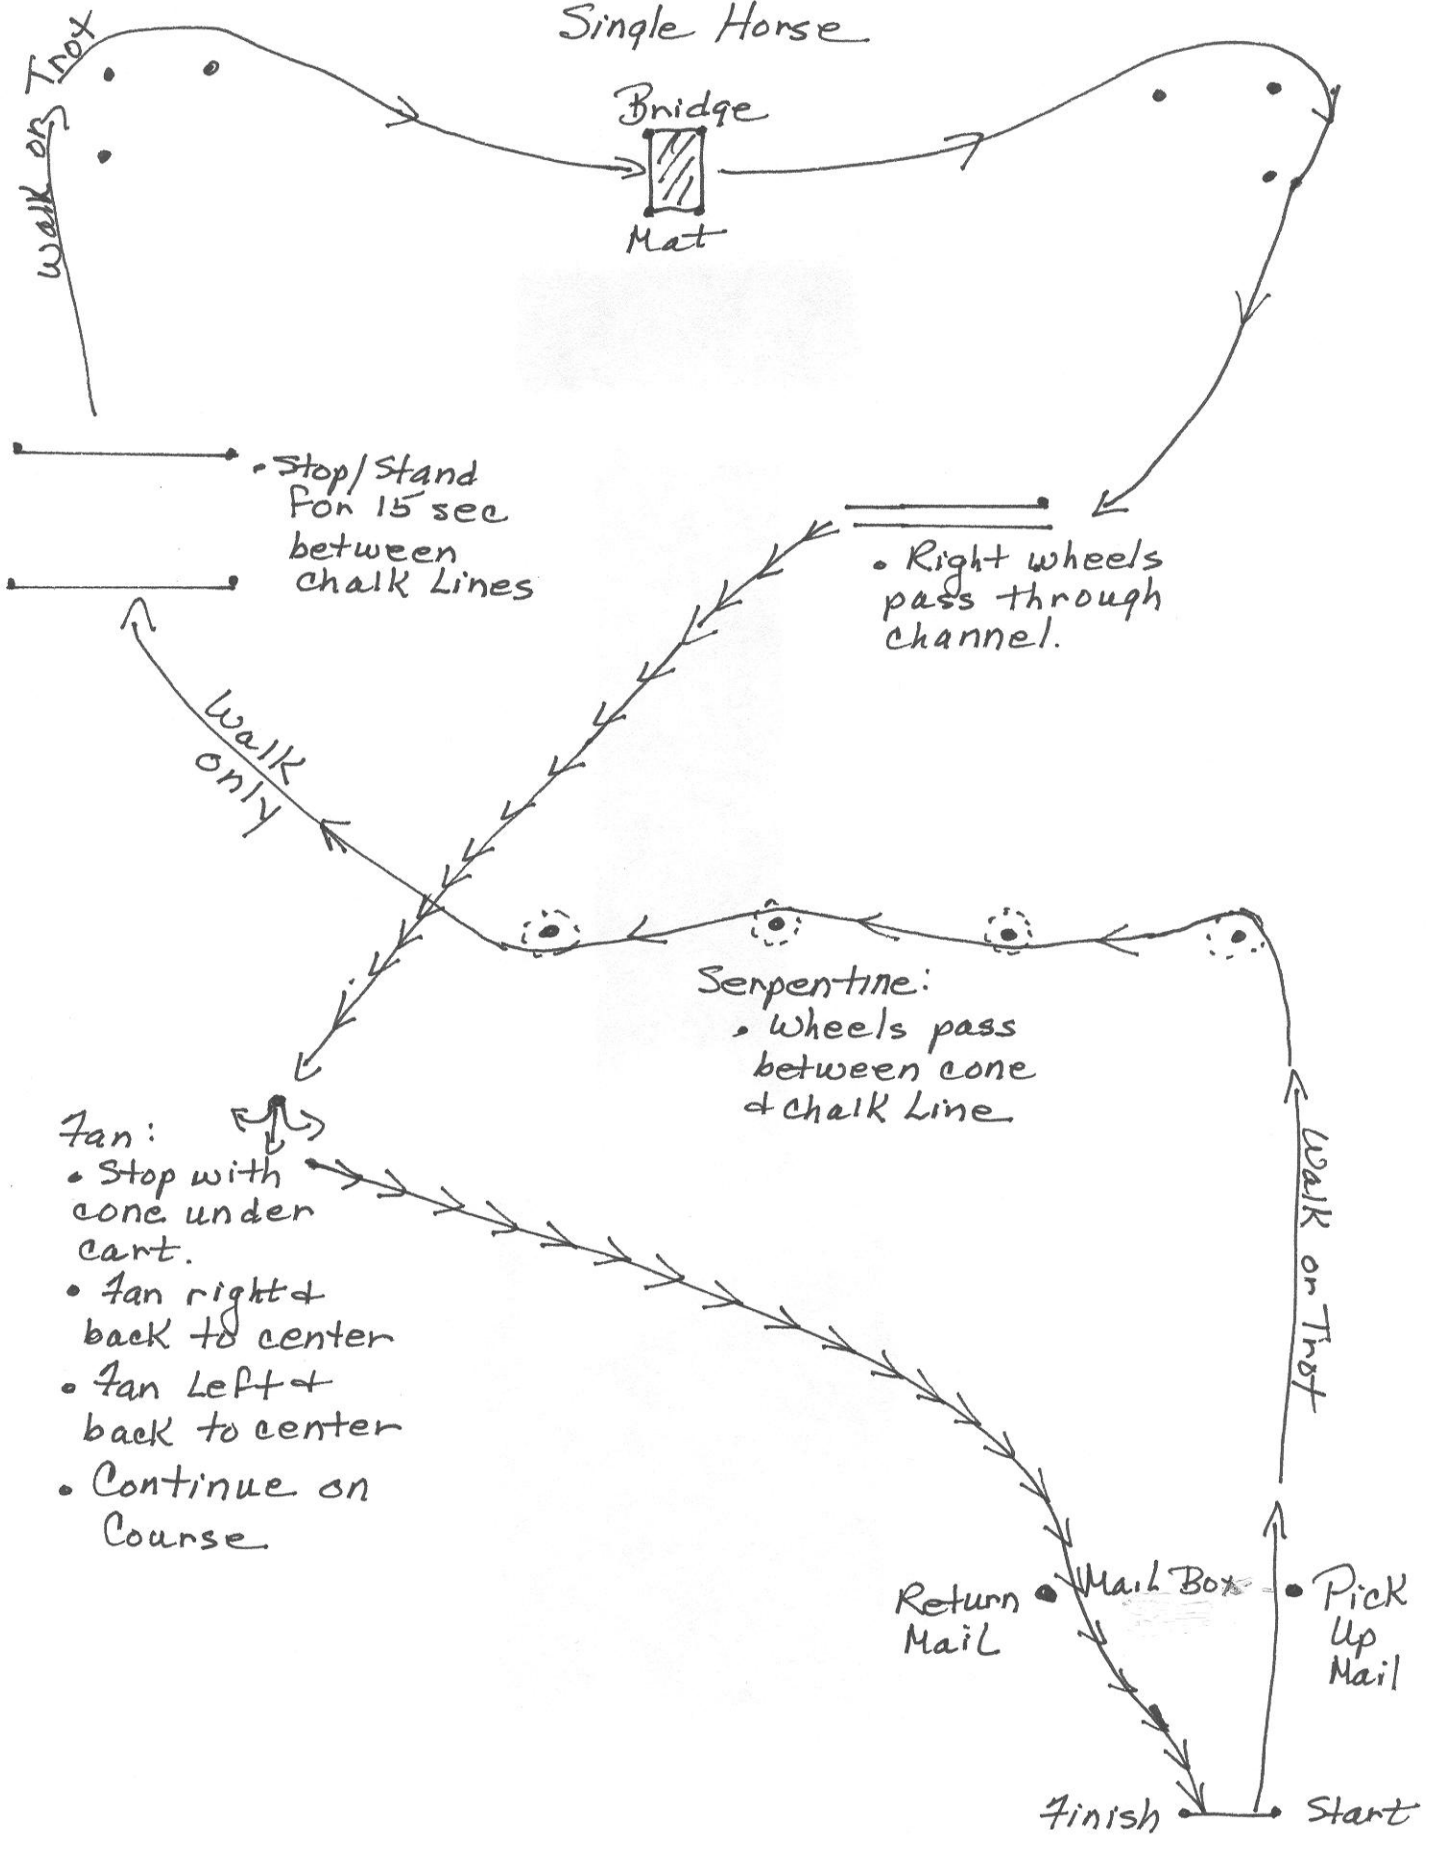 Single Horse
Walk or Trot
Bridge
Mat
• Stop/Stand
for 15 sec
between
Chalk Lines
• Right wheels
pass through
channel.
Walk
only
Serpentine:
• Wheels pass
between cone
& chalk Line
Fan:
• Stop with
cone under
cart.
• Fan right &
back to center
• Fan Left &
back to center
• Continue on
Course
Walk or Trot
Return
Mail
Mail Box
Pick
Up
Mail
Finish
Start